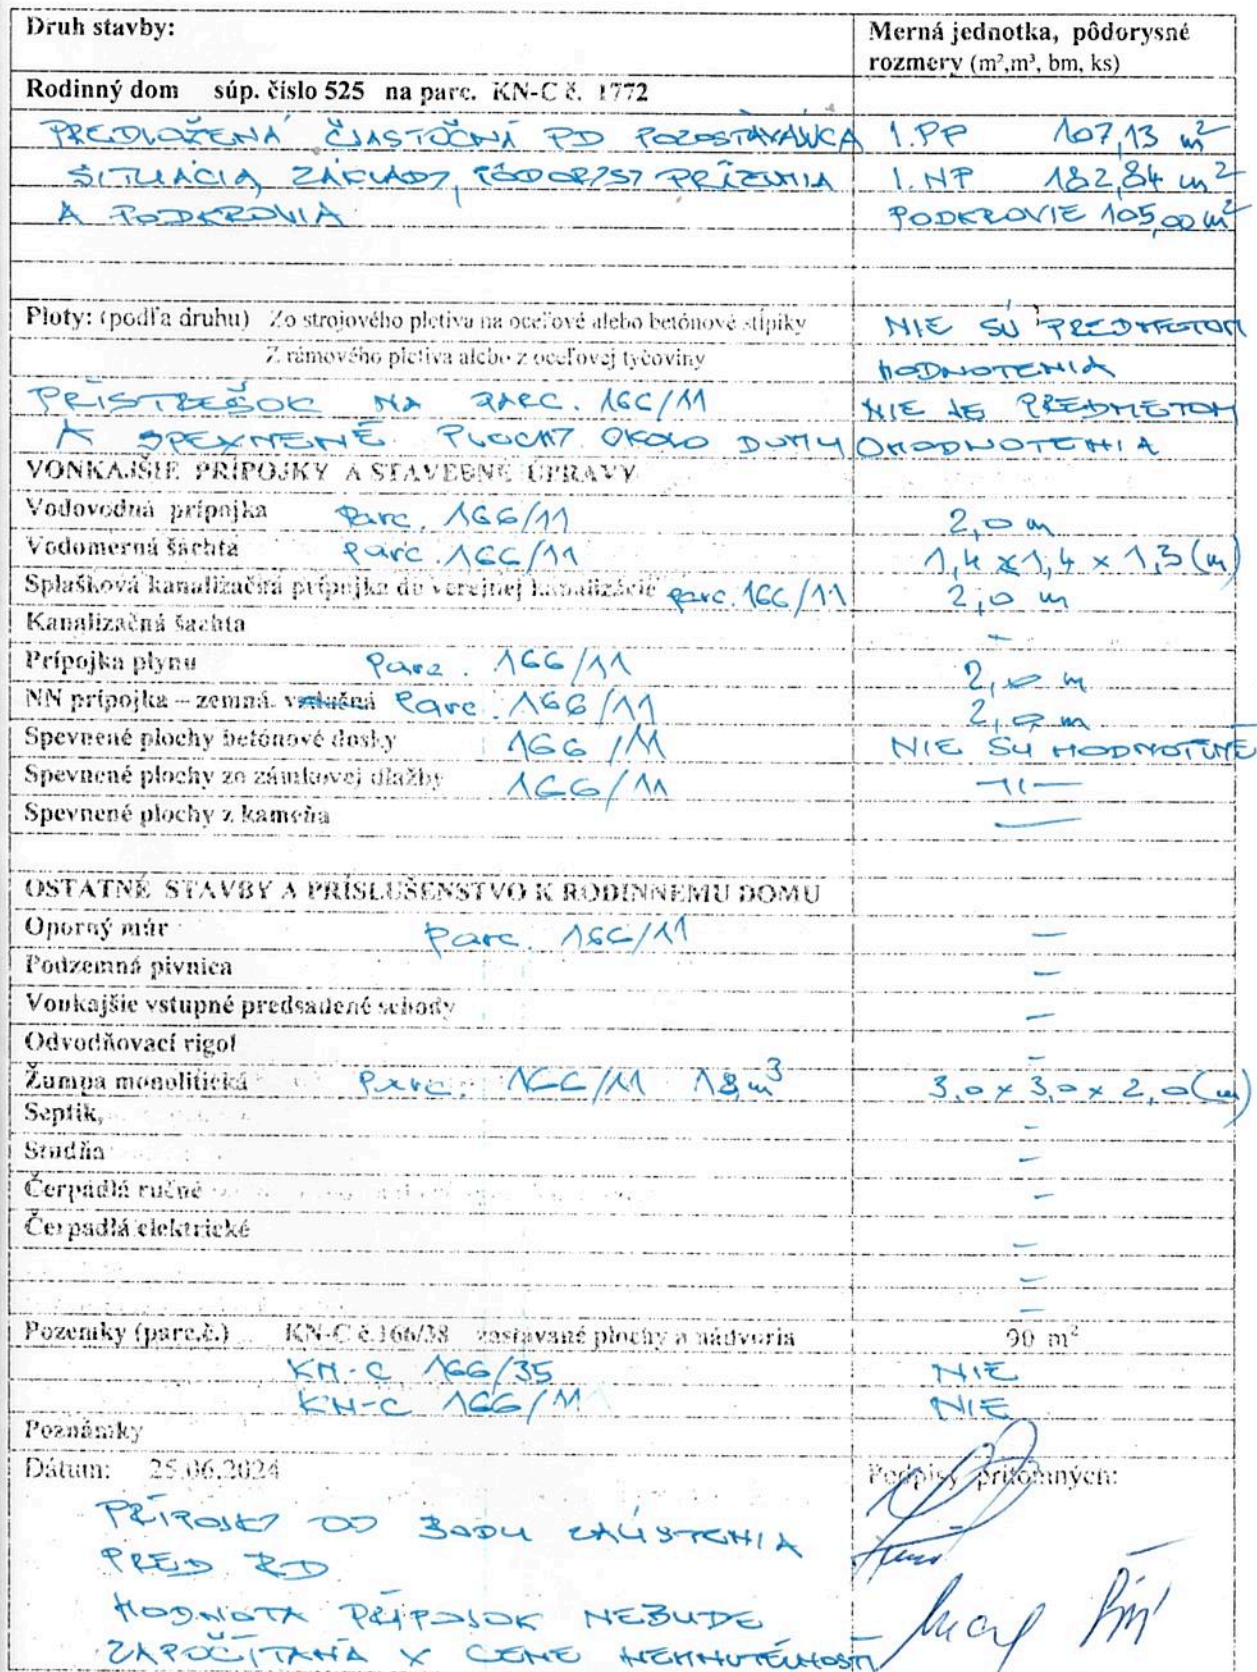 Druh stavby: Merná jednotka, pôdorysné
rozmery (m²,m³, bm, ks)
Rodinný dom súp. číslo 525 na parc. KN-C č. 1772
PREDLOŽENÁ ČIASTOČNÁ PD POZOSTÁVAJÚCA 1.PP 107,13 m²
SITUÁCIA, ZÁKLADY, PÔDORYSY PRÍZEMIA 1.NP 182,84 m²
A PODKROVIA PODKROVIE 105,00 m²
Ploty: (podľa druhu) Zo strojového pletiva na oceľové alebo betónové stĺpiky NIE SÚ PREDMETOM
Z rámového pletiva alebo z oceľovej tyčoviny HODNOTENIA
PRÍSTREŠOK NA PARC. 166/11 NIE JE PREDMETOM
A SPEVNENÉ PLOCHY OKOLO DOMU OHODNOTENIA
VONKAJŠIE PRÍPOJKY A STAVEBNÉ ÚPRAVY
Vodovodná prípojka Parc. 166/11 2,0 m
Vodomerná šachta parc. 166/11 1,4 x 1,4 x 1,3 (m)
Splašková kanalizačná prípojka do verejnej kanalizácie parc. 166/11 2,0 m
Kanalizačná šachta -
Prípojka plynu Parc. 166/11 2,0 m
NN prípojka – zemná. vzdušná Parc. 166/11 2,0 m
Spevnené plochy betónové dosky 166/11 NIE SÚ HODNOTENÉ
Spevnené plochy zo zámkovej dlažby 166/11 -11-
Spevnené plochy z kameňa —
OSTATNÉ STAVBY A PRÍSLUŠENSTVO K RODINNEMU DOMU
Oporný múr Parc. 166/11 -
Podzemná pivnica -
Vonkajšie vstupné predsadené schody -
Odvodňovací rigol -
Žumpa monolitická Parc. 166/11 18m³ 3,0 x 3,0 x 2,0 (m)
Septik, -
Studňa -
Čerpadlá ručné -
Čerpadlá elektrické -
-
-
Pozemky (parc.č.) KN-C č.166/38 zastavané plochy a nádvoria 90 m²
KN-C 166/35 NIE
KN-C 166/11 NIE
Poznámky
Dátum: 25.06.2024 Podpisy prítomných:
PRÍPOJKY OD BODU ZAÚSTENIA
PRED RD
HODNOTA PRÍPOJOK NEBUDE
ZAPOČÍTANÁ V CENE NEHNUTEĽNOSTI